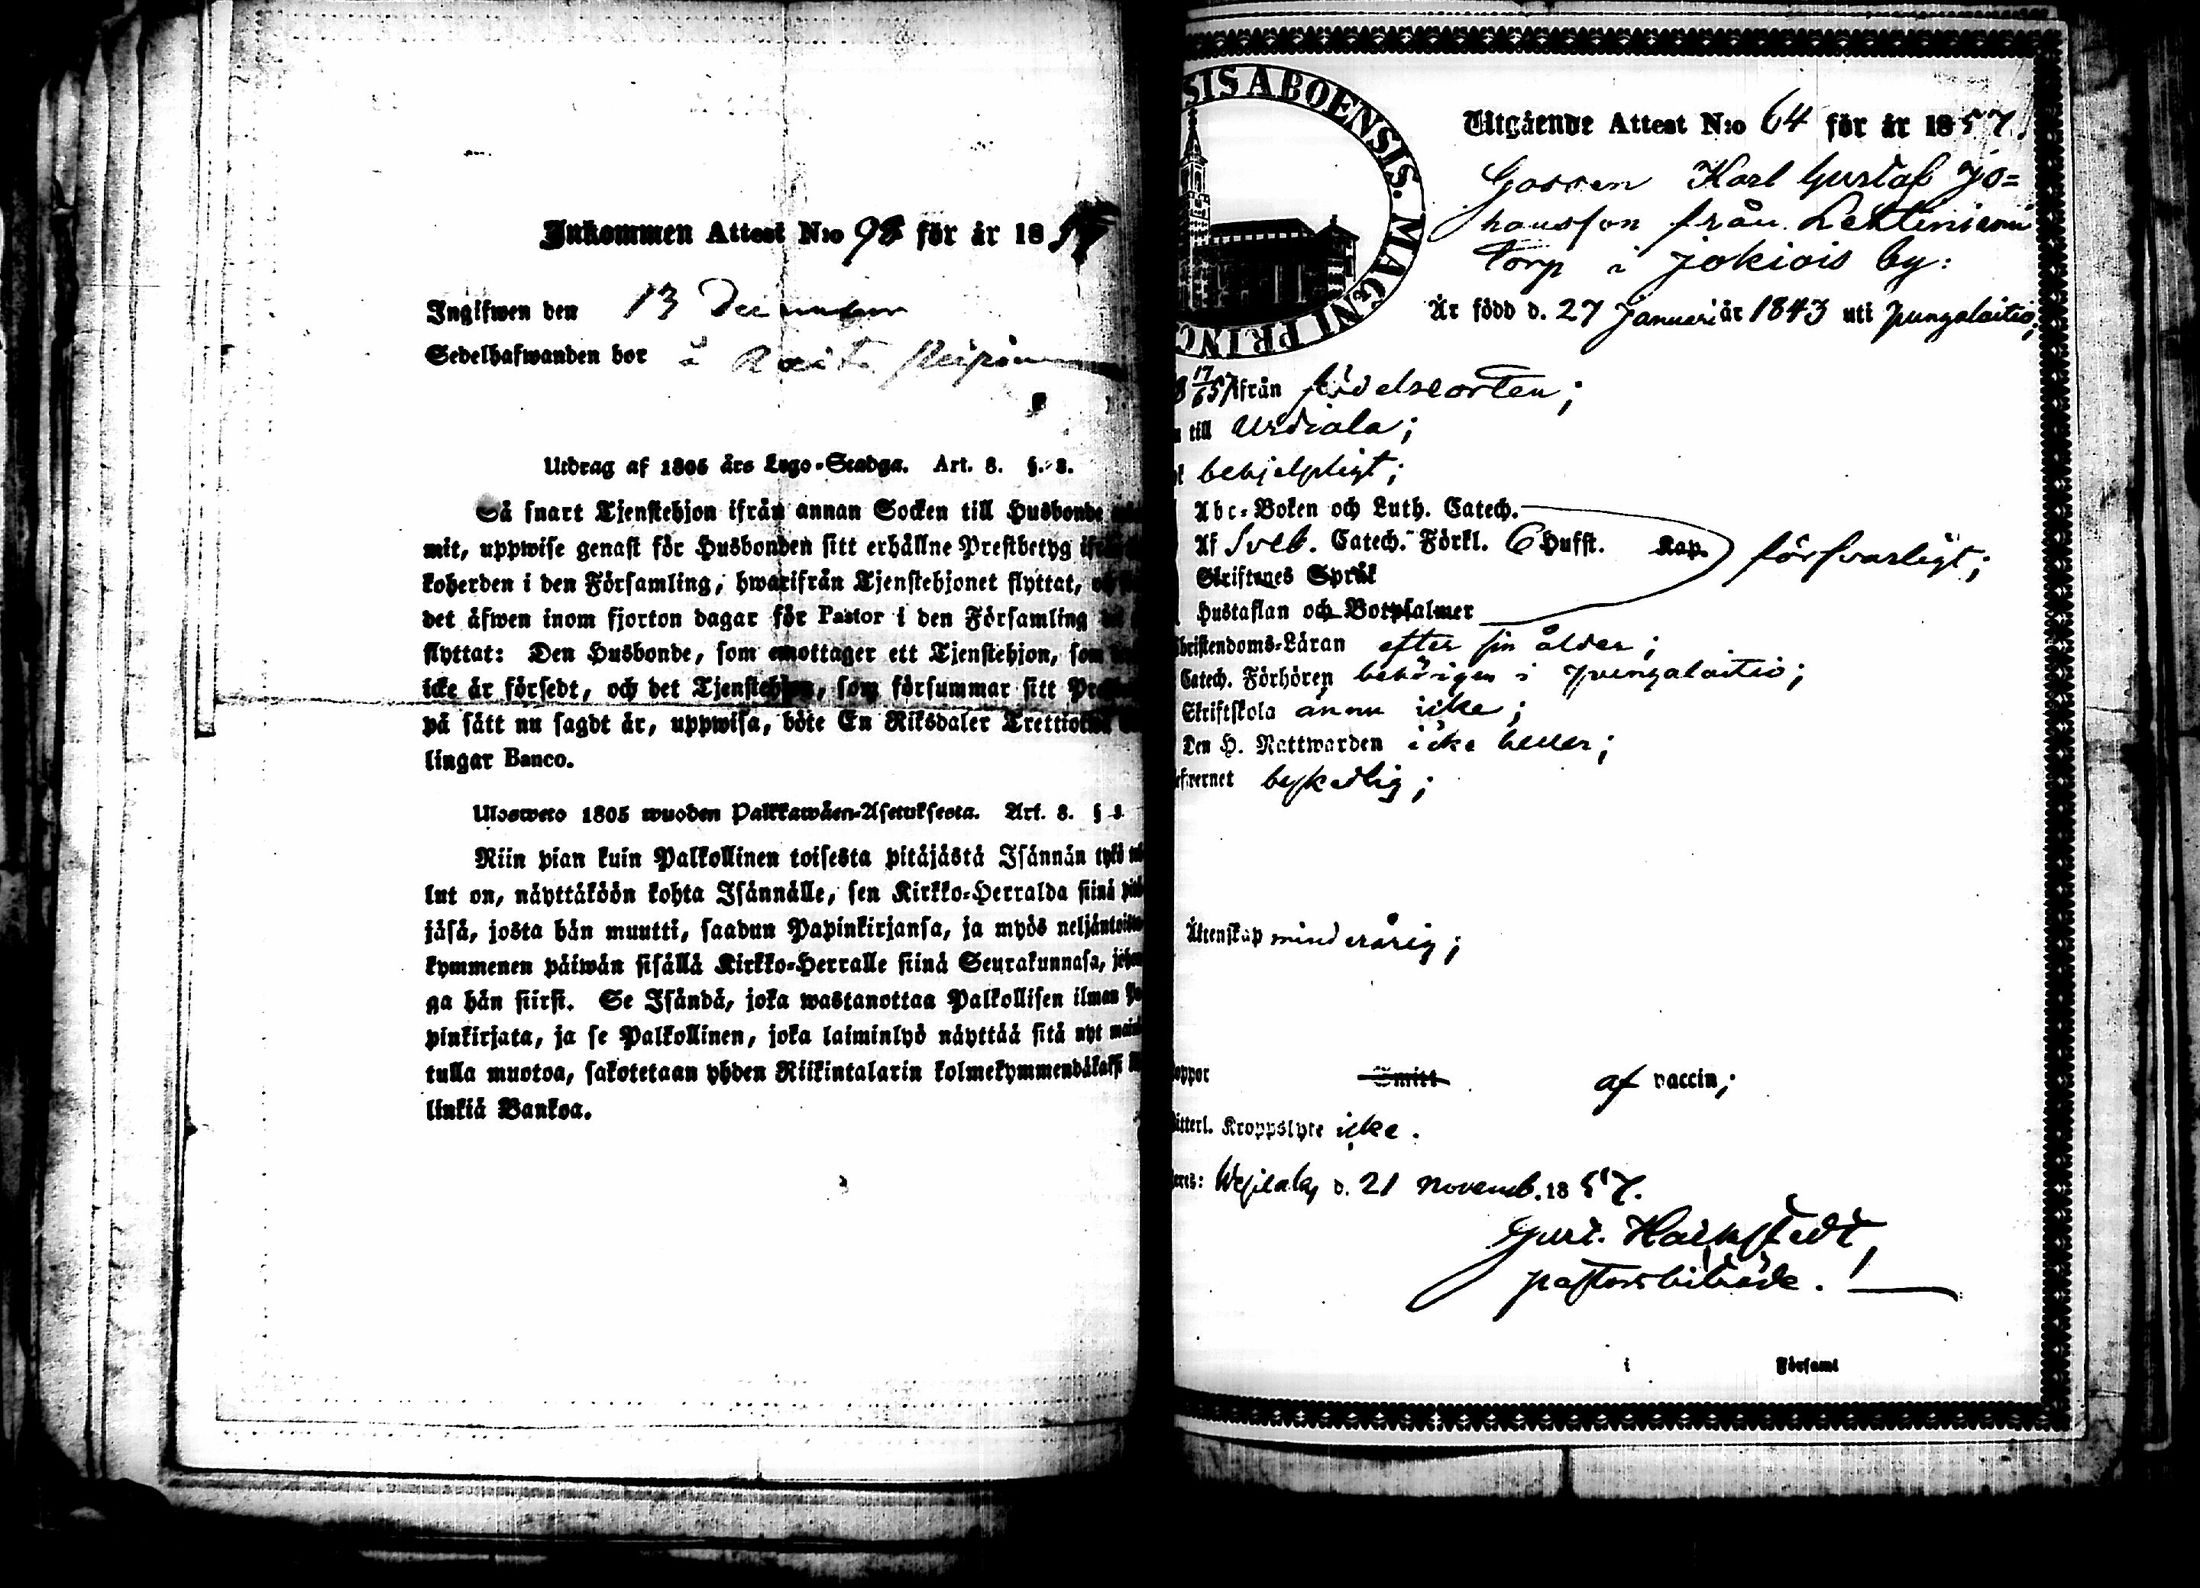 Inkommen Attest N:o 98 för år 1857
Ingifwen den 13 December
Sedelhafwanden bor å
Utdrag af 1805 års Lego-Stadga. Art. 8. §. 8.
Så snart Tjenstehjon ifrån annan Socken till Husbonde
mit, uppwise genast för Husbonden sitt erhållne Prestbetyg
koherden i den Församling, hwarifrån Tjenstehjonet flyttat,
det äfwen inom fjorton dagar för Pastor i den Församling
flyttat: Den Husbonde, som emottager ett Tjenstehjon, som
icke är försedt, och det Tjenstehjon, som försummar sitt
på sätt nu sagdt är, uppwisa, böte En Riksdaler
lingar Banco.
Ulosweto 1805 wuoden Palkkawäen-Asetuksesta. Art. 8. § 8
Niin pian kuin Palkollinen toisesta pitäjästä Isännän tykö
lut on, näyttäköön kohta Isännälle, sen Kirkko-Herralda siinä
jäsä, josta hän muutti, saadun Papinkirjansa, ja myös
kymmenen päiwän sisällä Kirkko-Herralle siinä Seurakunnasa,
ga hän siirsi. Se Isändä, joka wastanottaa Palkollisen ilman
pinkirjata, ja se Palkollinen, joka laiminlyö näyttää sitä nyt
tulla muotoa, sakotetaan yhden Riikintalarin
linkiä Bankoa.
SIS ABOENSIS. MAGNI PRINC
Utgående Attest N:o 64 för år 1857.
Gossen Karl Gustaf Jo=
hansson från Lehtiniemi
torp i Jokiois by:
Är född d. 27 Januari år 1843 uti Pungalaitio;
ifrån födelseorten;
till Urdiala;
behjelpligt;
Abc-Boken och Luth. Catech.
Af Sveb. Catech. Förkl. 6 Hufst. Kap. försvarligt;
Skriftenes Språk
Hustaflan och Botpsalmer
Christendoms-Läran efter sin ålder;
Catech. Förhören behörigen i Pungalaitio;
Skriftskola ännu icke;
Den H. Nattwarden icke heller;
efrernet beskedlig;
Äktenskap minderårig;
oppor Smitt af vaccin;
itterl. Kroppslyte icke.
d. 21 Novemb. 1857.
Gust. Hacksted,
pastorsbiträde.
i Församl